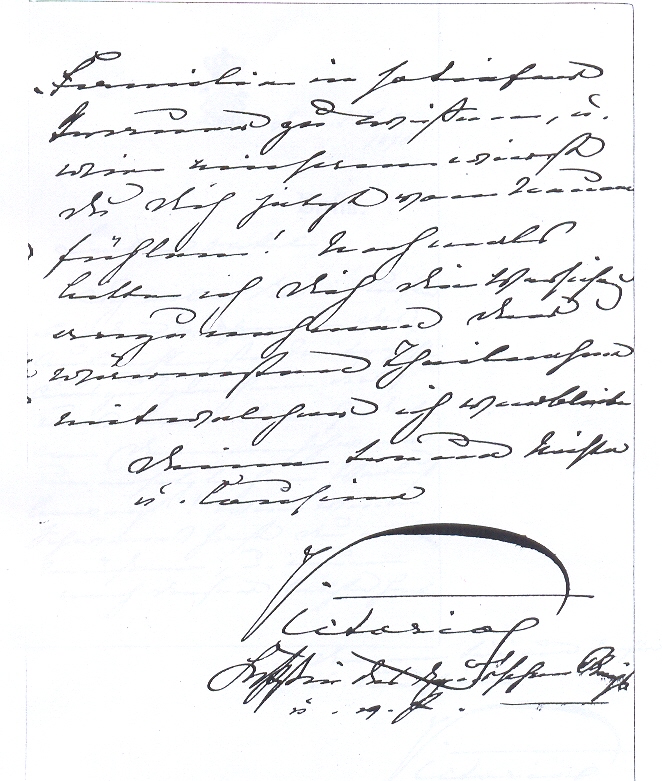 Familie in so tiefer
Trauer zu wissen, u.
wie einsam wirst
du dich jetzt von neuem
fühlen! Nochmals
bitte ich dich die Versichg
anzunehmen der
wärmsten Theilnahme
mit welcher ich verbleibe
deine treue Nichte
u. Cousine
Victoria
des
u. s. f.